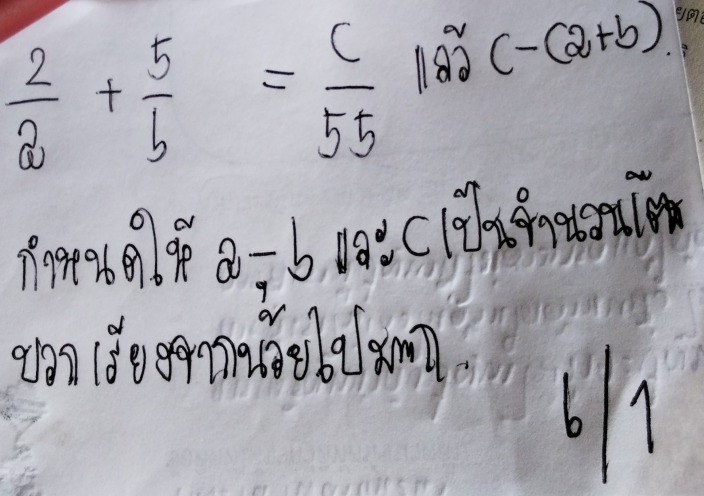 2/a + 5/b = c/55 แล้ว c-(a+b)
กำหนดให้ a, b และ c เป็นจำนวนเต็ม
บวก เรียงจากน้อยไปมาก
6/1